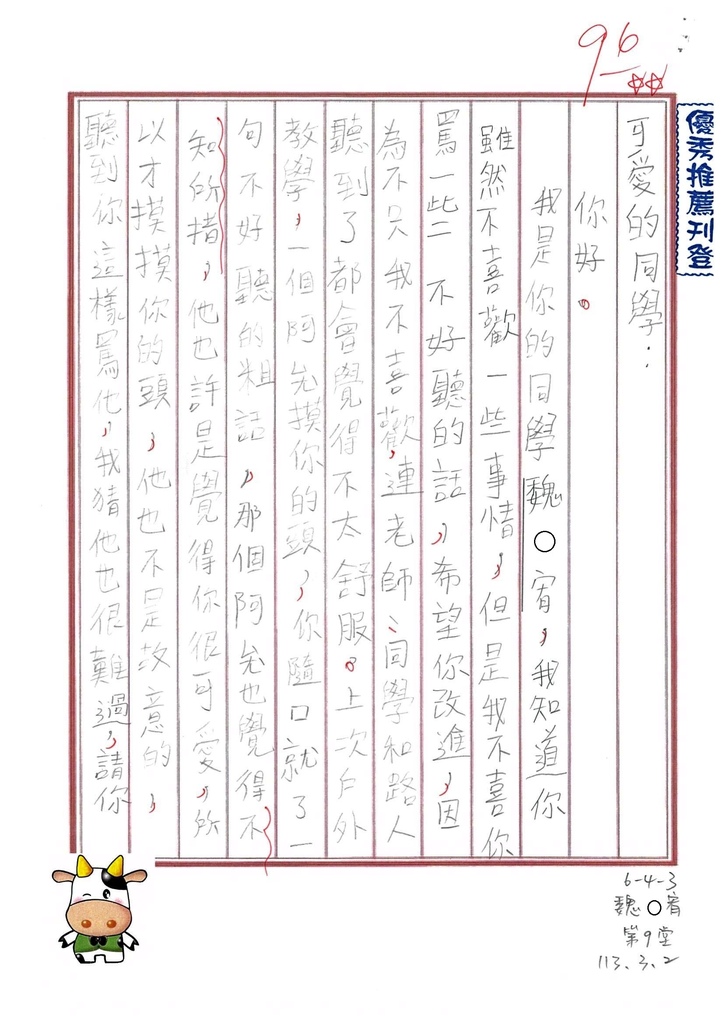 96
優秀推薦刊登
可愛的同學：
你好。
我是你的同學魏○宥，我知道你
雖然不喜歡一些事情，但是我不喜你
罵一些不好聽的話，希望你改進，因
為不只我不喜歡，連老師、同學和路人
聽到了都會覺得不太舒服。上次戶外
教學，一個阿允摸你的頭，你隨口就了一
句不好聽的粗話，那個阿允也覺得不
知所措，他也許是覺得你很可愛，所
以才摸摸你的頭，他也不是故意的，
聽到你這樣罵他，我猜他也很難過，請你
6-4-3
魏○宥
第9堂
113.3.2